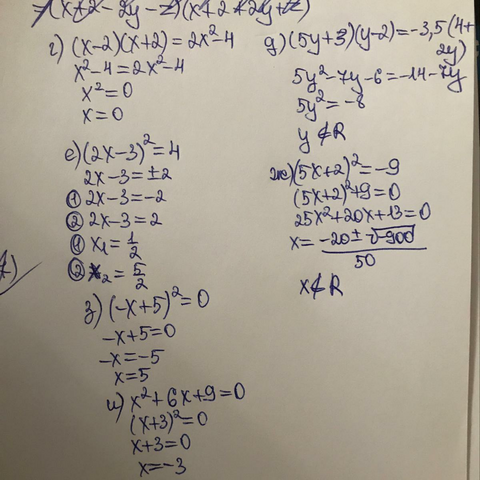 =(x+2-2y-z)(x+2+2y+z)
г) (x-2)(x+2)=2x²-4
x²-4=2x²-4
x²=0
x=0
д) (5y+3)(y-2)=-3,5(4+
2y)
5y²-7y-6=-14-7y
5y²=-8
y∉R
е) (2x-3)²=4
2x-3=±2
① 2x-3=-2
② 2x-3=2
① x₁=1/2
② x₂=5/2
ж) (5x+2)²=-9
(5x+2)²+9=0
25x²+20x+13=0
x=(-20±√-900)/50
x∉R
з) (-x+5)²=0
-x+5=0
-x=-5
x=5
и) x²+6x+9=0
(x+3)²=0
x+3=0
x=-3